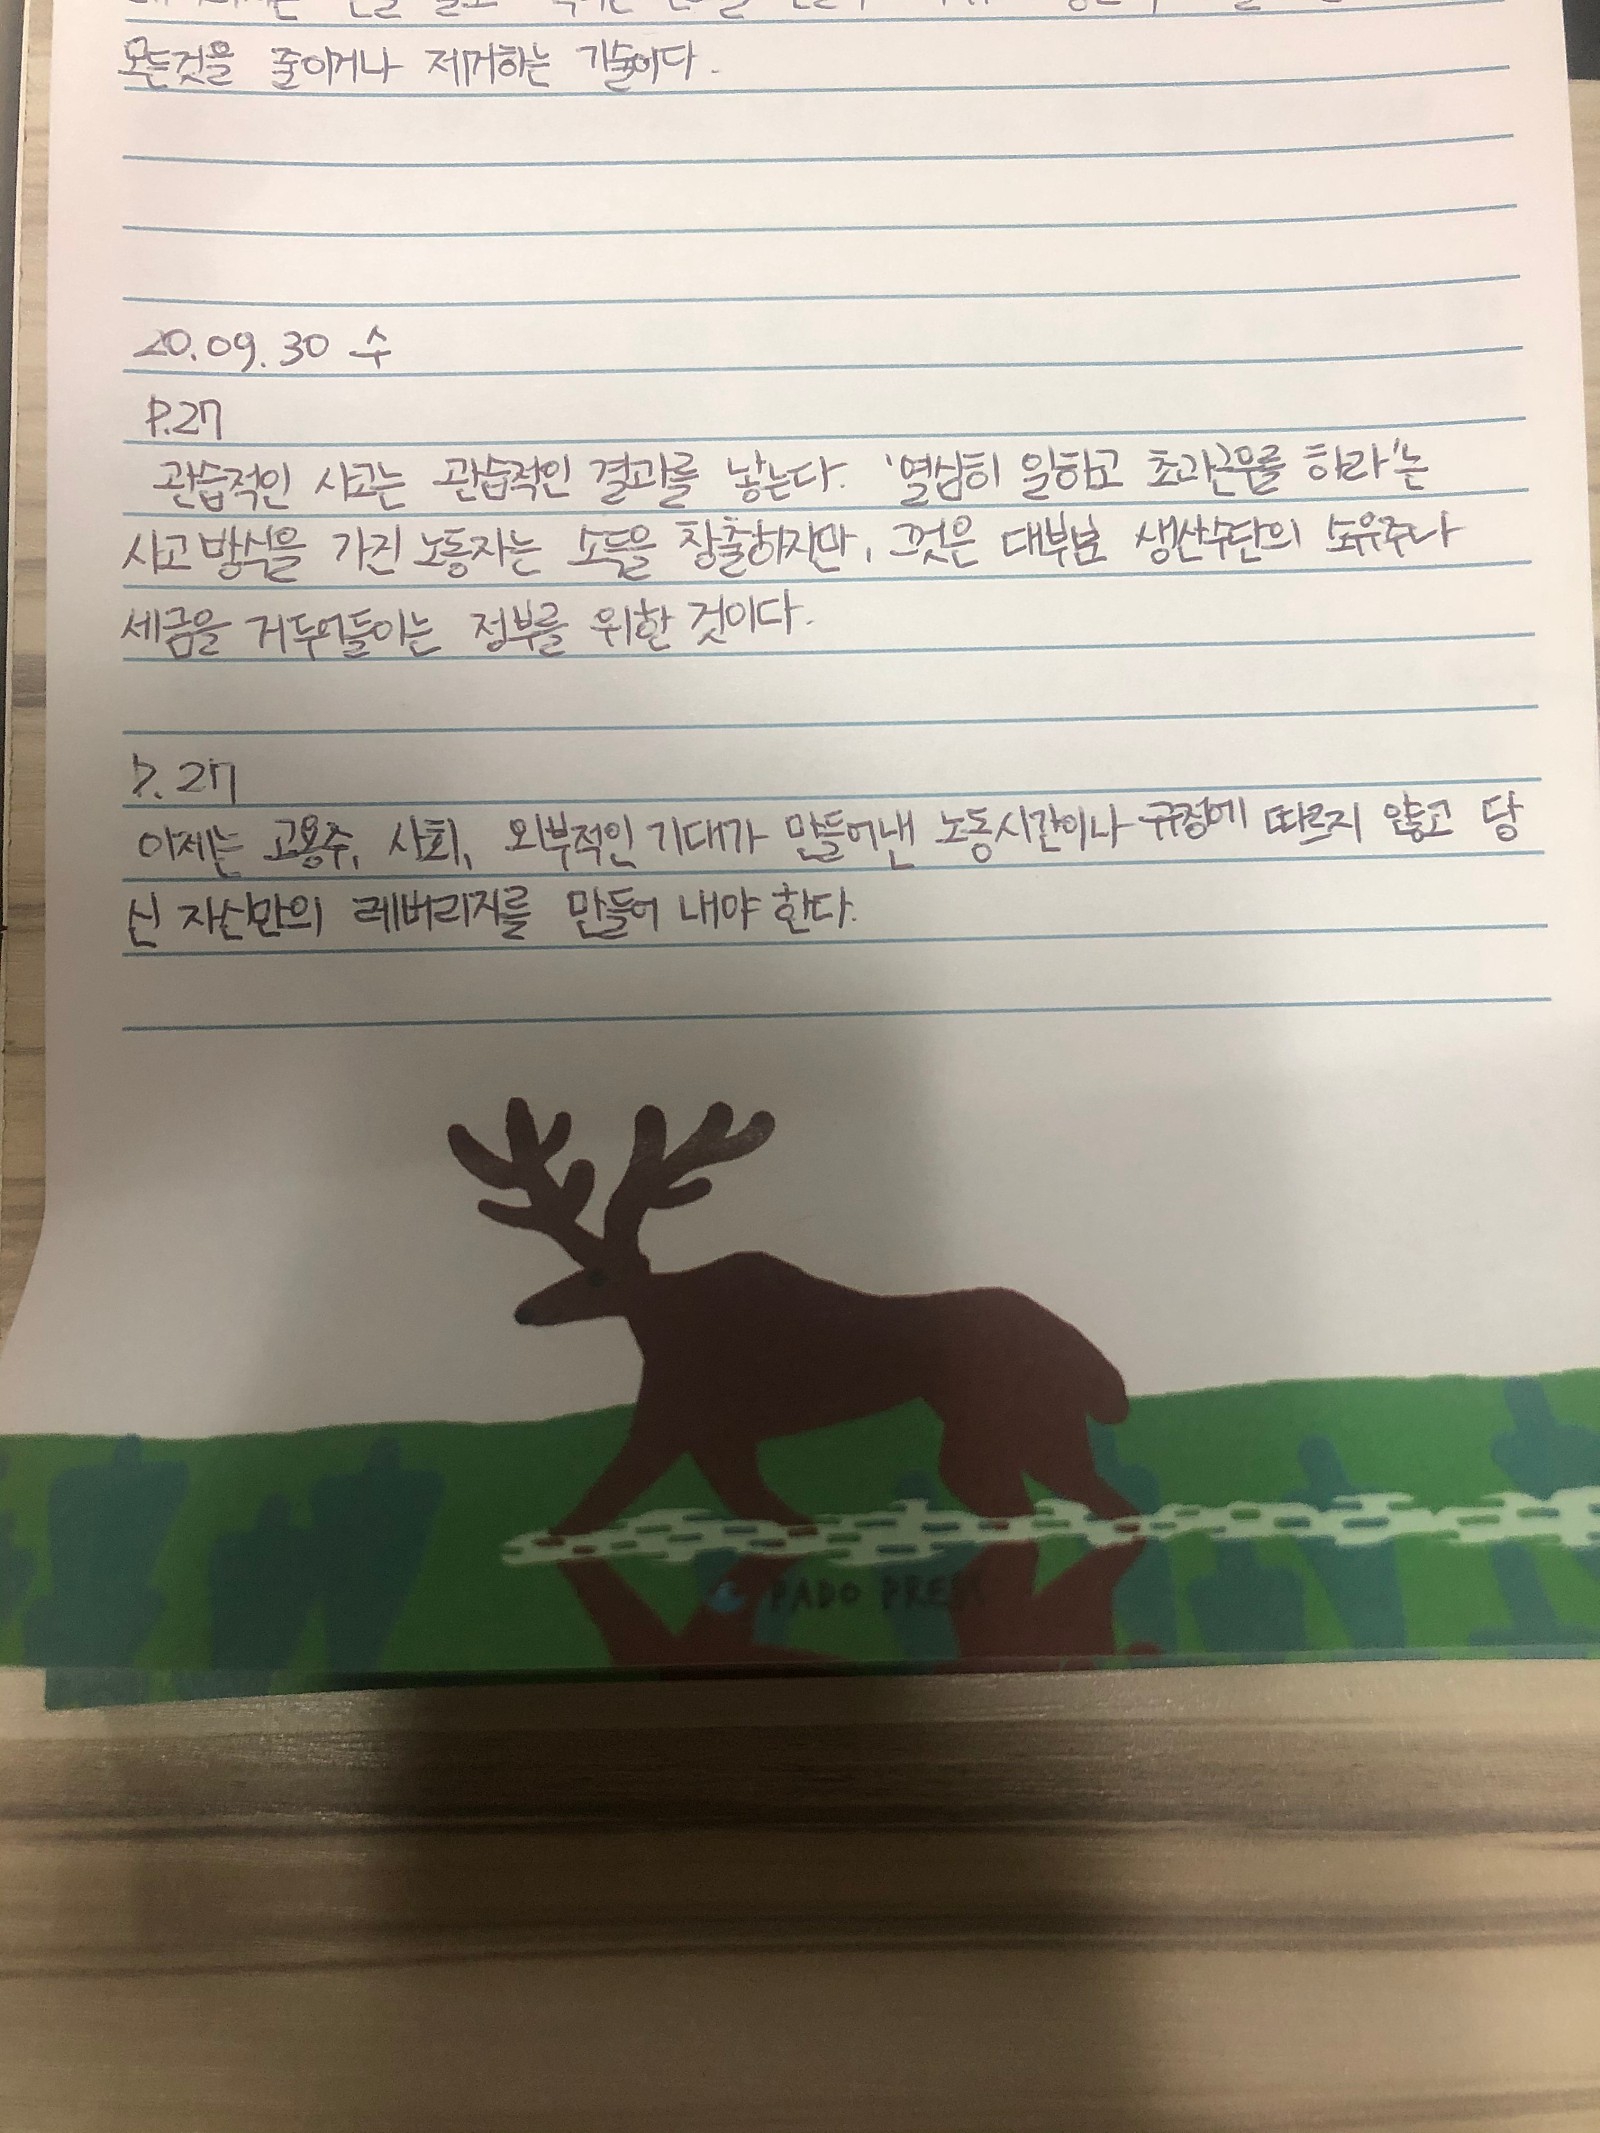 모든것을 줄이거나 제거하는 기술이다.
20.09.30 수
P.27
관습적인 사고는 관습적인 결과를 낳는다. '열심히 일하고 초과근무를 하라'는
사고방식을 가진 노동자는 소득을 창출하지만, 그것은 대부분 생산수단의 소유주나
세금을 거두어들이는 정부를 위한 것이다.
P. 27
이제는 고용주, 사회, 외부적인 기대가 만들어낸 노동시간이나 규정에 따르지 않고 당
신 자신만의 레버리지를 만들어 내야 한다.
PADO PRESS